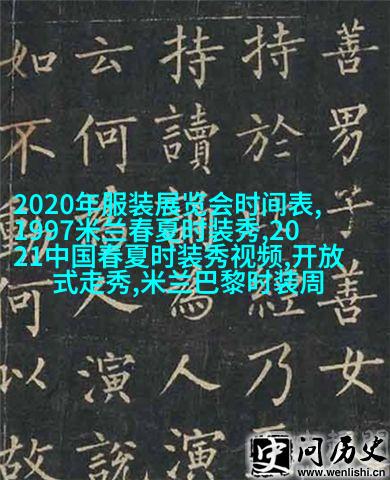 善男子善女
持於乃
持讀為人演
云何演說
如不何以故
2020年服装展览会时间表,
1997米兰春夏时装秀,20
21中国春夏时装秀视频,开放
式走秀,米兰巴黎时装周
史问历史
www.wenlishi.cn